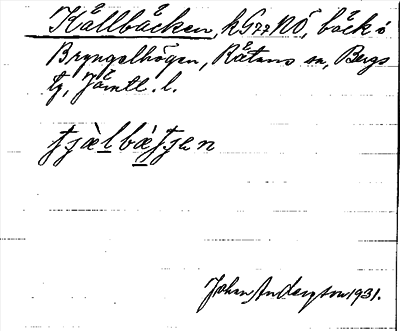 Källbäcken, kG77NÖ, bäck i
Bryngelhögen, Rätans sn, Bergs
tg, Jämtl. l.
tjàlbátjen
John Andersson 1931.